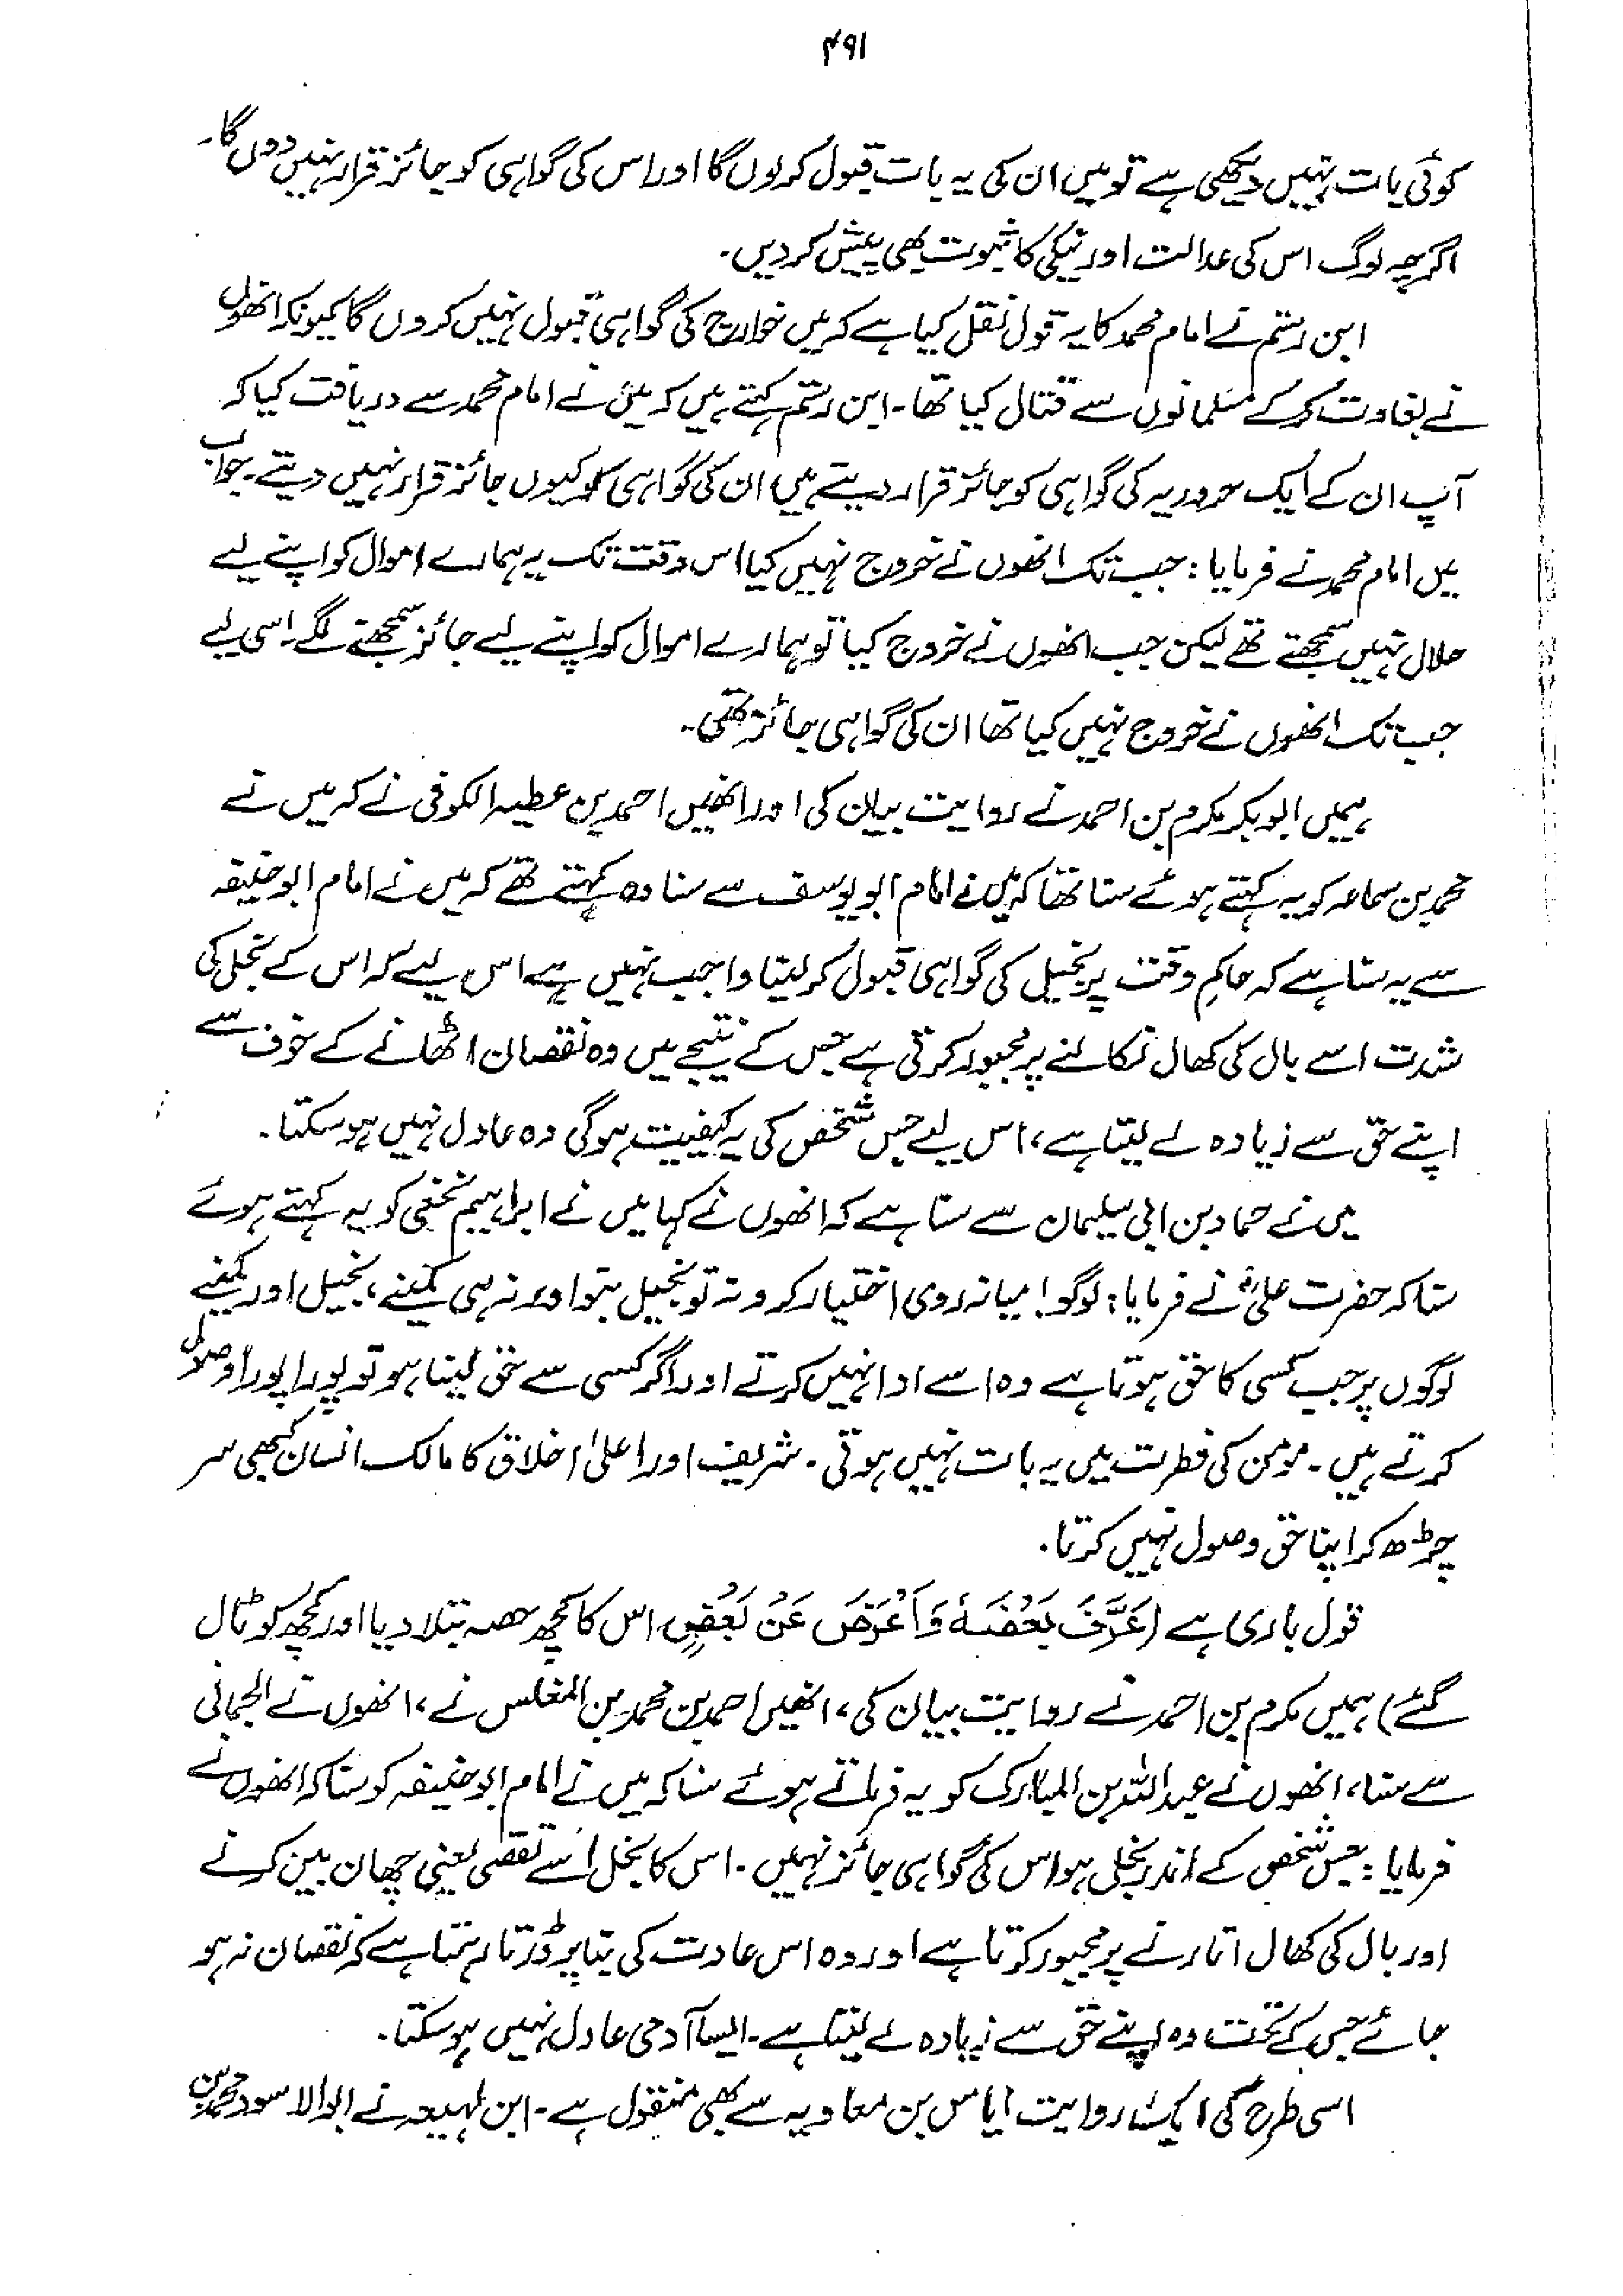 ۴۹۱
کوئی بات نہیں دیکھی ہے تو میں ان کی یہ بات قبول کرلوں گا اور اس کی گواہی کو جائز قرار نہیں دوں گا۔
اگرچہ لوگ اس کی عدالت اور نیکی کا ثبوت بھی پیش کردیں۔
ابن رستم نے امام محمد کا یہ قول نقل کیا ہے کہ میں خوارج کی گواہی قبول نہیں کروں گا کیونکہ انھوں
نے بغاوت کرکے مسلمانوں سے قتال کیا تھا۔ ابن رستم کہتے ہیں کہ میں نے امام محمد سے دریافت کیا کہ
آپ ان کے ایک حروریہ کی گواہی کو جائز قرار دیتے ہیں ان کی گواہی کو کیوں جائز قرار نہیں دیتے۔ جواب
میں امام محمد نے فرمایا: جب تک انھوں نے خروج نہیں کیا اس وقت تک یہ ہمارے اموال کو اپنے لیے
حلال نہیں سمجھتے تھے لیکن جب انھوں نے خروج کیا تو ہمارے اموال کو اپنے لیے جائز سمجھنے لگے۔ اسی لیے
جب تک انھوں نے خروج نہیں کیا تھا ان کی گواہی جائز تھی۔
ہمیں ابوبکر مکرم بن احمد نے روایت بیان کی اور انھیں احمد بن عطیہ الکوفی نے کہ میں نے
محمد بن سماعہ کو یہ کہتے ہوئے سنا تھا کہ میں نے امام ابویوسف سے سنا وہ کہتے تھے کہ میں نے امام ابوحنیفہ
سے یہ سنا ہے کہ حاکم وقت پر بخیل کی گواہی قبول کرلینا واجب نہیں ہے اس لیے کہ اس کے بخل کی
شدت اسے بال کی کھال نکالنے پر مجبور کرتی ہے جس کے نتیجے میں وہ نقصان اٹھانے کے خوف سے
اپنے حق سے زیادہ لے لیتا ہے، اس لیے جس شخص کی یہ کیفیت ہوگی وہ عادل نہیں ہوسکتا۔
میں نے حماد بن ابی سلیمان سے سنا ہے کہ انھوں نے کہا میں نے ابراہیم نخعی کو یہ کہتے ہوئے
سنا کہ حضرت علیؓ نے فرمایا: لوگو! میانہ روی اختیار کرو نہ تو بخیل بنو اور نہ ہی کمینے، بخیل اور کمینے
لوگوں پر جب کسی کا حق ہوتا ہے وہ اسے ادا نہیں کرتے اور اگر کسی سے حق لینا ہو تو پورا پورا وصول
کرتے ہیں۔ مومن کی فطرت میں یہ بات نہیں ہوتی۔ شریف اور اعلیٰ اخلاق کا مالک انسان کبھی سر
چڑھ کر اپنا حق وصول نہیں کرتا۔
قول باری ہے (عَرَّفَ بَعْضَہٗ وَاَعْرَضَ عَنْ بَعْضٍ اس کا کچھ حصہ بتلا دیا اور کچھ کو ٹال
گئے) ہمیں مکرم بن احمد نے روایت بیان کی، انھیں احمد بن محمد بن المغلس نے، انھوں نے الحمانی
سے سنا، انھوں نے عبداللہ بن المبارک کو یہ فرماتے ہوئے سنا کہ میں نے امام ابوحنیفہ کو سنا کہ انھوں نے
فرمایا: جس شخص کے اندر بخل ہو اس کی گواہی جائز نہیں۔ اس کا بخل اسے تقصی یعنی چھان بین کرنے
اور بال کی کھال اتارنے پر مجبور کرتا ہے اور وہ اس عادت کی بنا پر ڈرتا رہتا ہے کہ نقصان نہ ہو
جائے جس کے تحت وہ اپنے حق سے زیادہ لے لیتا ہے۔ ایسا آدمی عادل نہیں ہوسکتا۔
اسی طرح کی ایک روایت ایاس بن معاویہ سے بھی منقول ہے۔ ابن لہیعہ نے ابوالاسود محمد بن